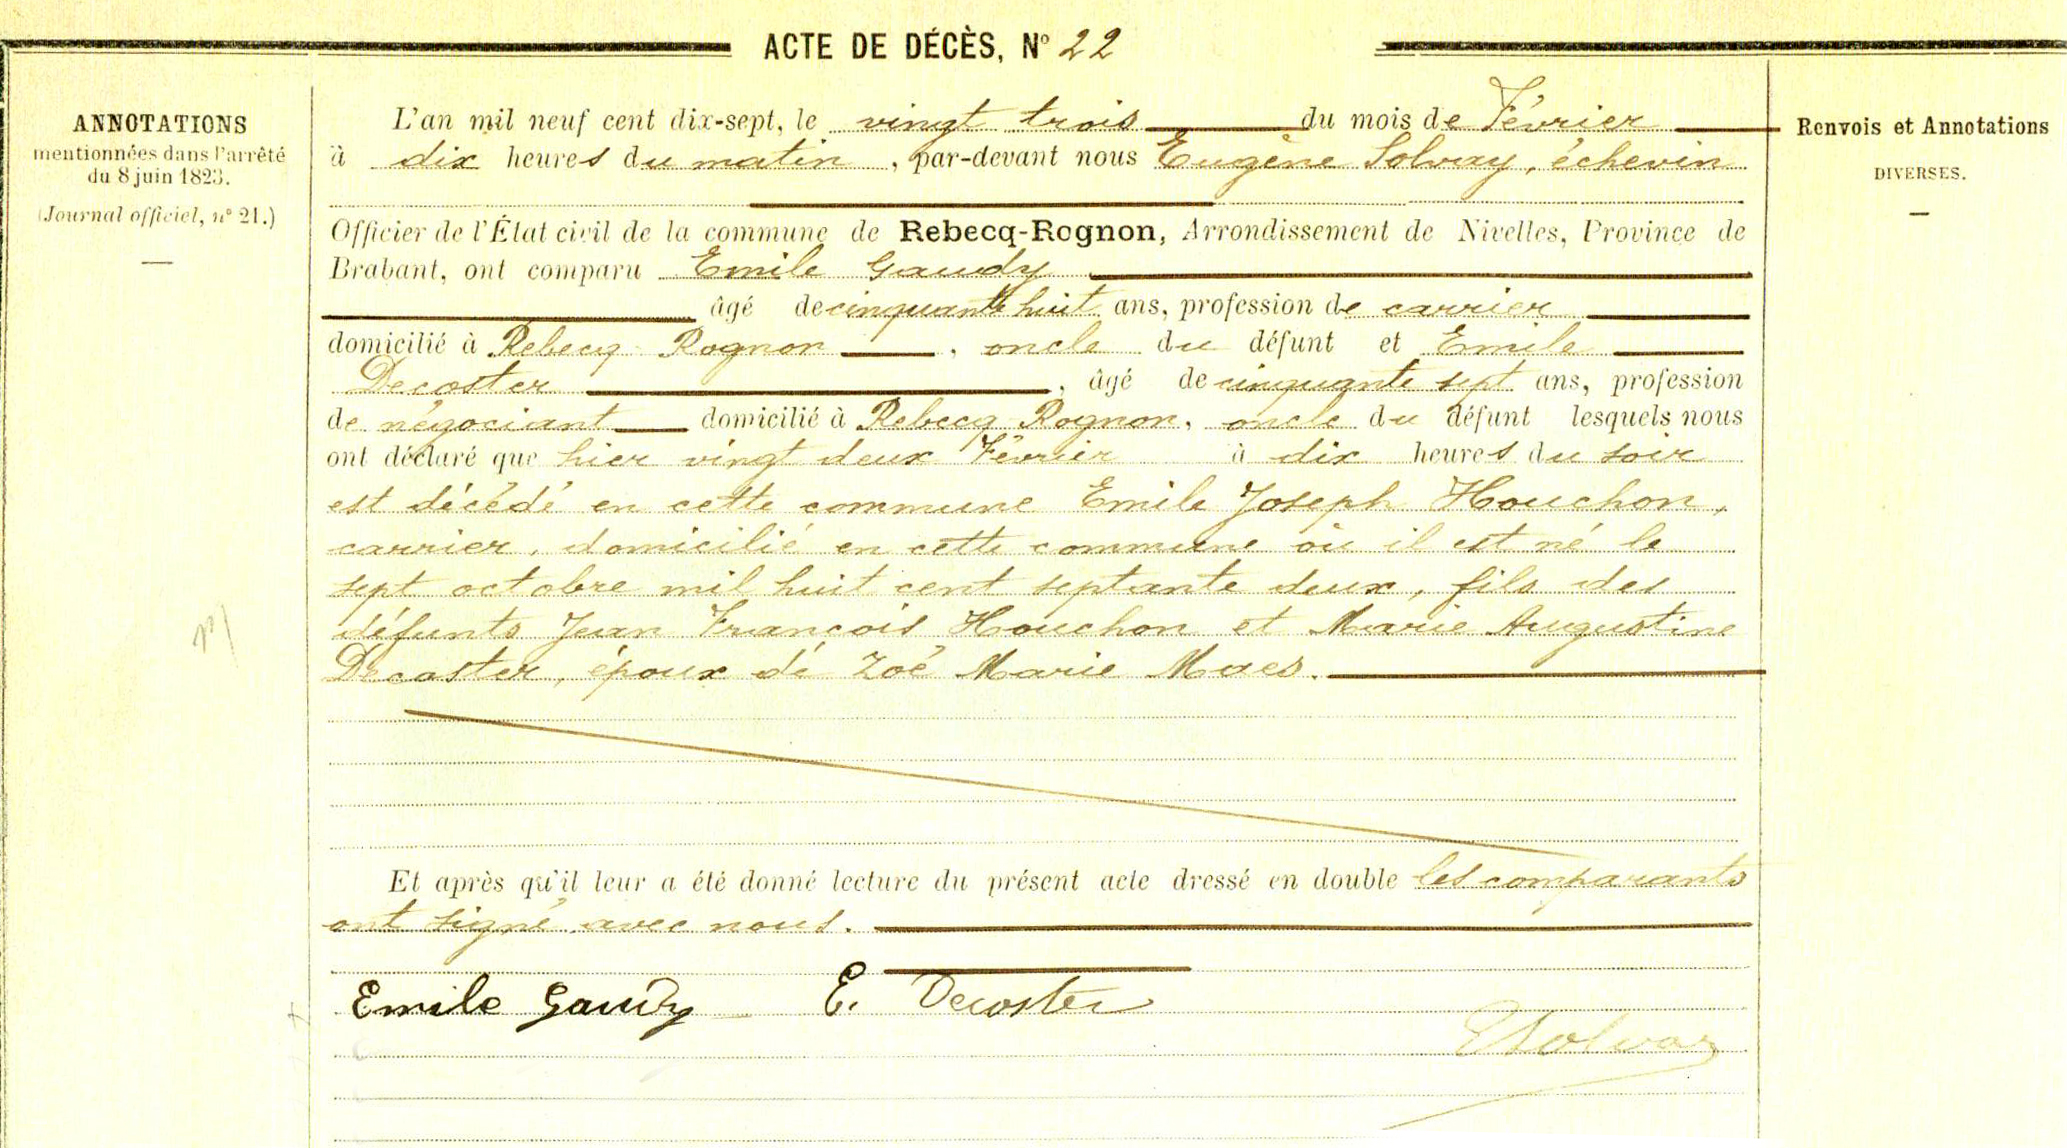 ACTE DE DÉCÈS, N° 22
ANNOTATIONS
mentionnées dans l'arrêté
du 8 juin 1823.
(Journal officiel, n° 21.)
L'an mil neuf cent dix-sept, le vingt trois du mois de Février
à dix heures du matin, par-devant nous Eugène Solvay, échevin
Officier de l'État civil de la commune de Rebecq-Rognon, Arrondissement de Nivelles, Province de
Brabant, ont comparu Emile Gaudy
âgé de cinquante huit ans, profession de carrier
domicilié à Rebecq Rognon, oncle du défunt et Emile
Decoster, âgé de cinquante sept ans, profession
de négociant domicilié à Rebecq Rognon, oncle du défunt lesquels nous
ont déclaré que hier vingt deux Février à dix heures du soir
est décédé en cette commune Emile Joseph Houchon,
carrier, domicilié en cette commune où il est né le
sept octobre mil huit cent septante deux, fils des
défunts Jean François Houchon et Marie Augustine
Decoster, époux de Zoé Marie Maes.
Et après qu'il leur a été donné lecture du présent acte dressé en double les comparants
ont signé avec nous.
Emile Gaudy E. Decoster
E Solvay
Renvois et Annotations
DIVERSES.